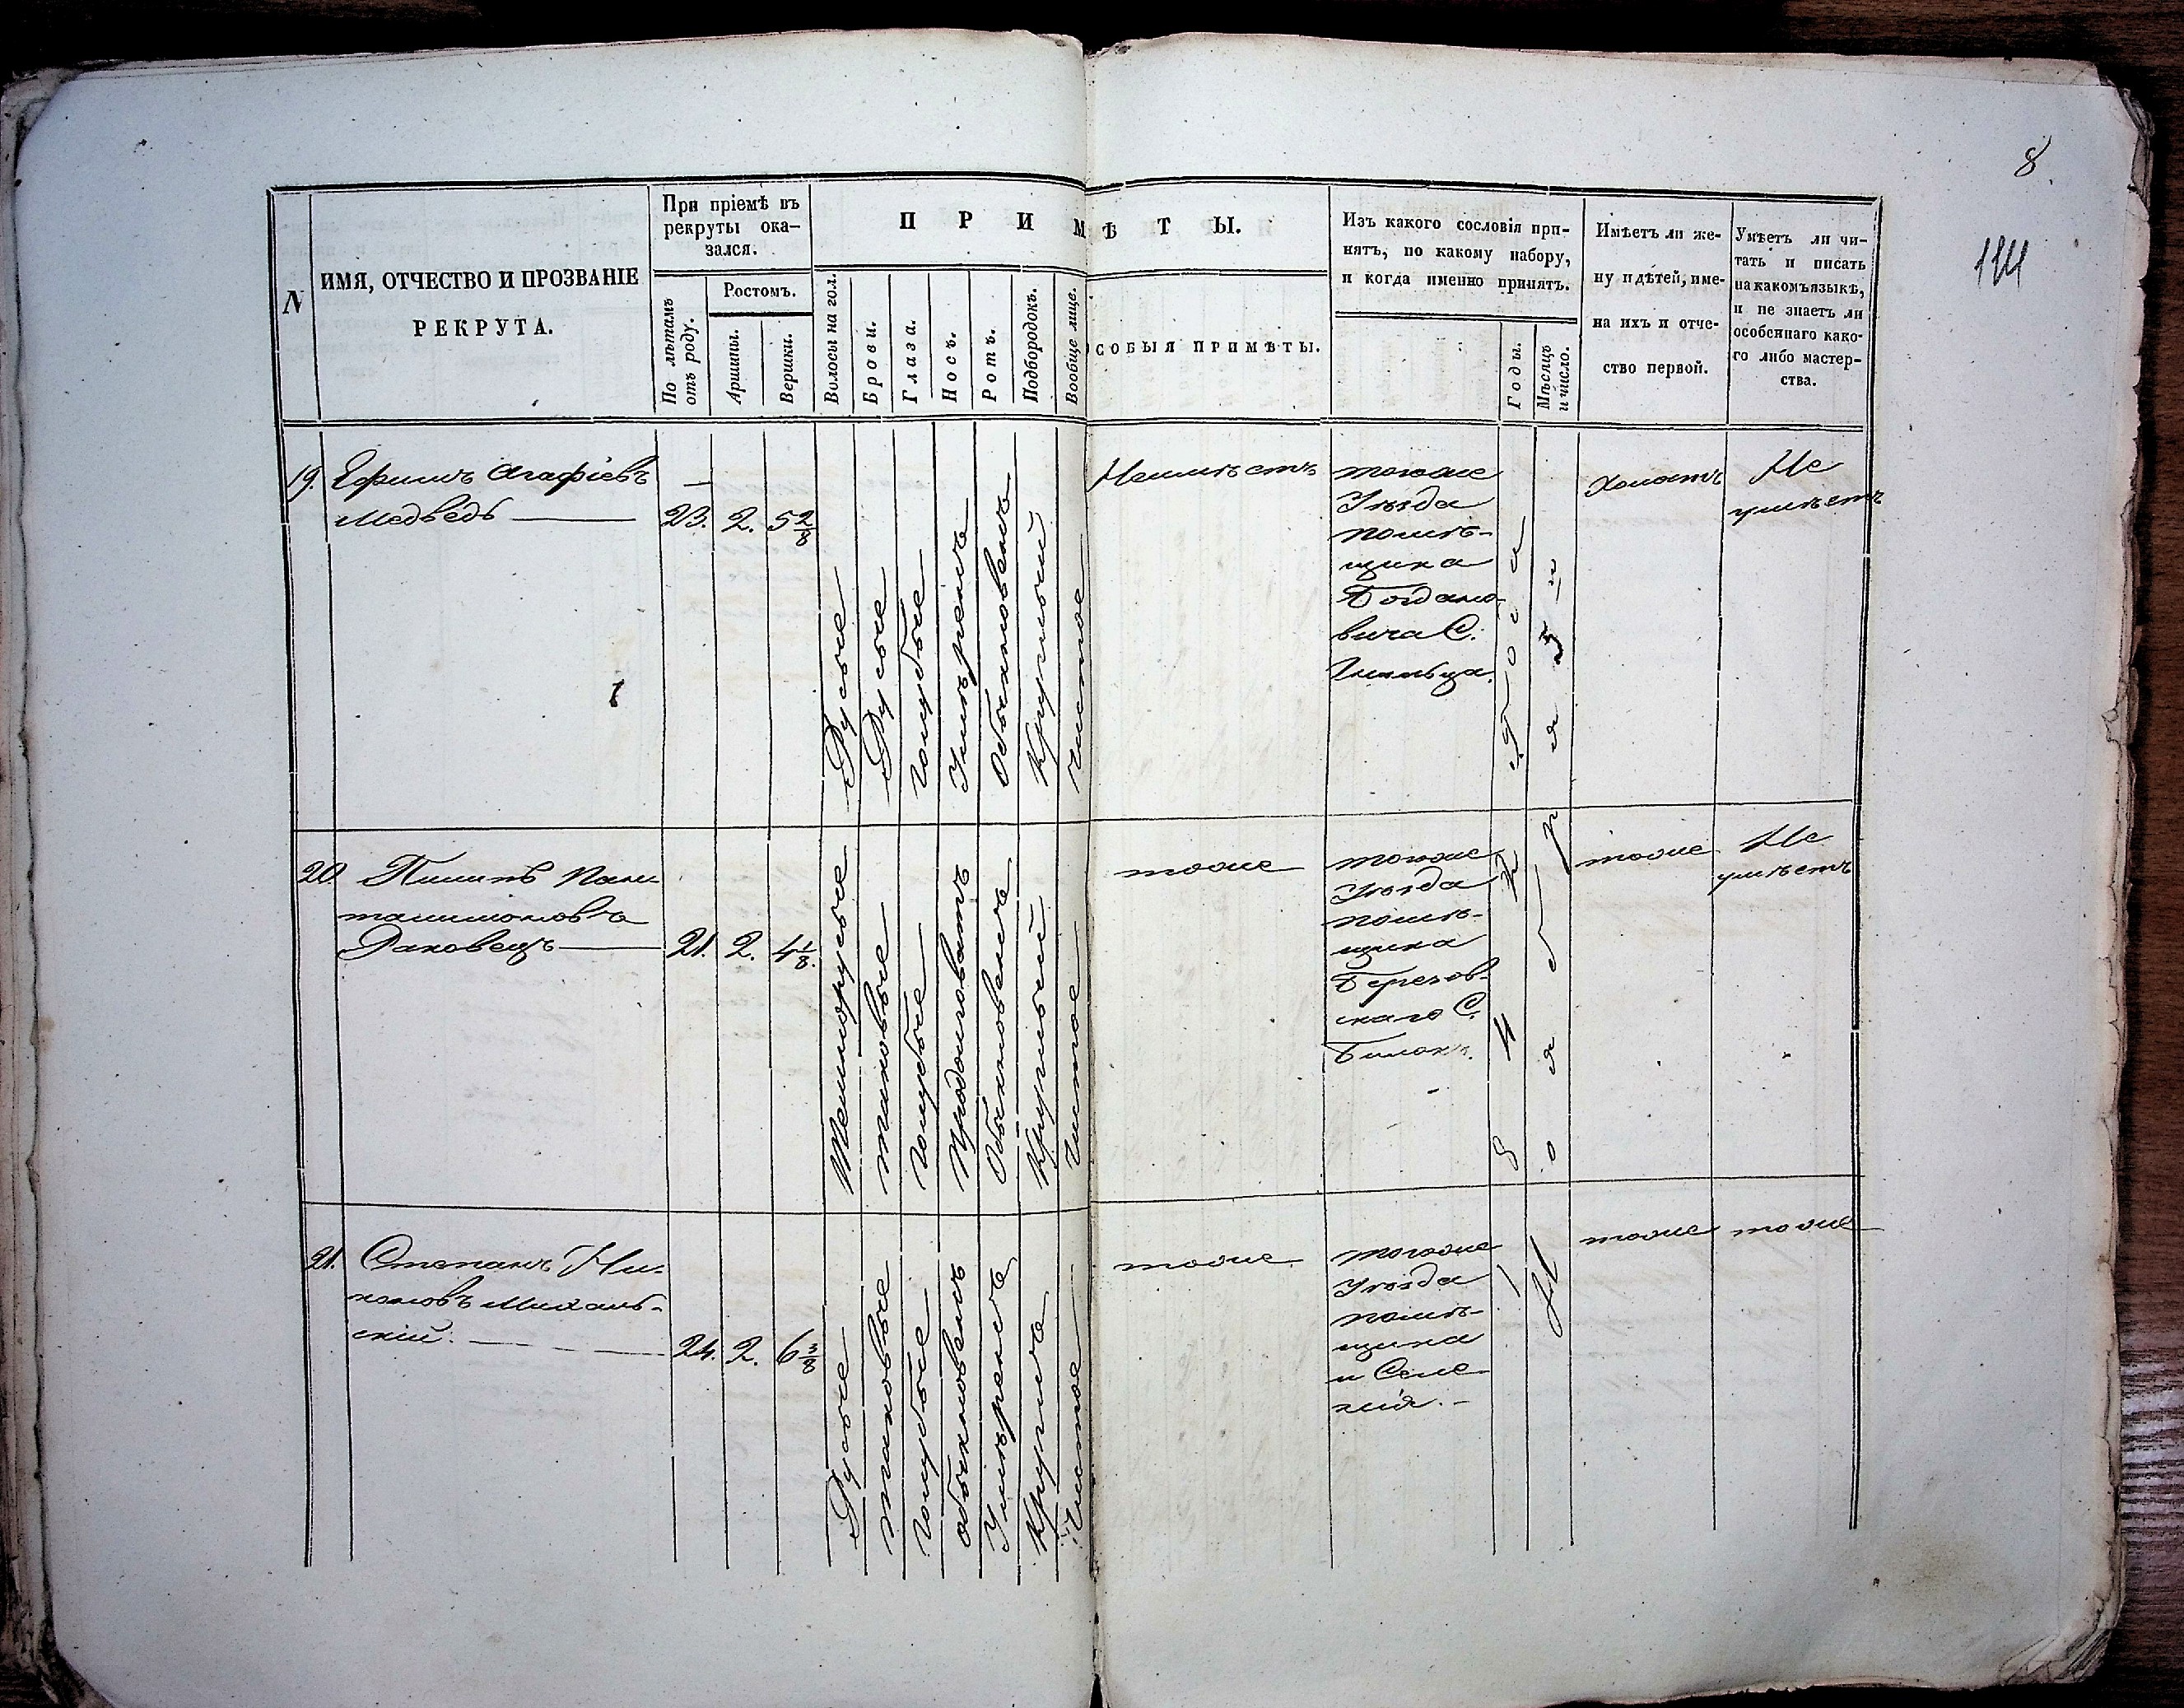 8.
114
N
ИМЯ, ОТЧЕСТВО И ПРОЗВАНІЕ
РЕКРУТА.
При пріемѣ въ
рекруты ока-
зался.
По лѣтамъ
отъ роду.
Ростомъ.
Аршины.
Вершки.
П Р И М Ѣ Т Ы.
Волосы на гол.
Брови.
Глаза.
Носъ.
Ротъ.
Подбородокъ.
Вообще лице.
ОСОБЫЯ ПРИМѢТЫ.
Изъ какого сословія при-
нятъ, по какому набору,
и когда именно принятъ.
Годы.
Мѣсяцъ
и число.
Имѣетъ ли же-
ну и дѣтей, име-
на ихъ и отче-
ство первой.
Умѣетъ ли чи-
тать и писать
на какомъ языкѣ,
и не знаетъ ли
особеннаго како-
го либо мастер-
ства.
19.
Ефимъ Агафіевъ
Медвѣдь
23.
2.
5 2/8
Русые
Русые
голубые
Умѣренъ
Обыкновенъ
Круглый
Чистое
Неимѣетъ
тогоже
Уѣзда
помѣ-
щика
Богдано-
вича С.
Холостъ
Не
умѣетъ
20.
Пилипъ Пан-
талимоновъ
Раковецъ
21.
2.
4 1/8.
Темнорусые
таковые
голубые
Продолговатъ
Обыкновенъ
Круглый
Чистое
тоже
тогоже
Уѣзда
помѣ-
щика
Березов-
скаго С.
тоже
Не
умѣетъ
21.
Степанъ Ни-
коновъ Михаль-
скій.
24.
2.
6 3/8
Русые
таковые
голубые
обыкновенъ
Умѣренъ
Круглъ
Чистое
тоже
тогоже
Уѣзда
помѣ-
щика
и Селе-
нія.
тоже
тоже